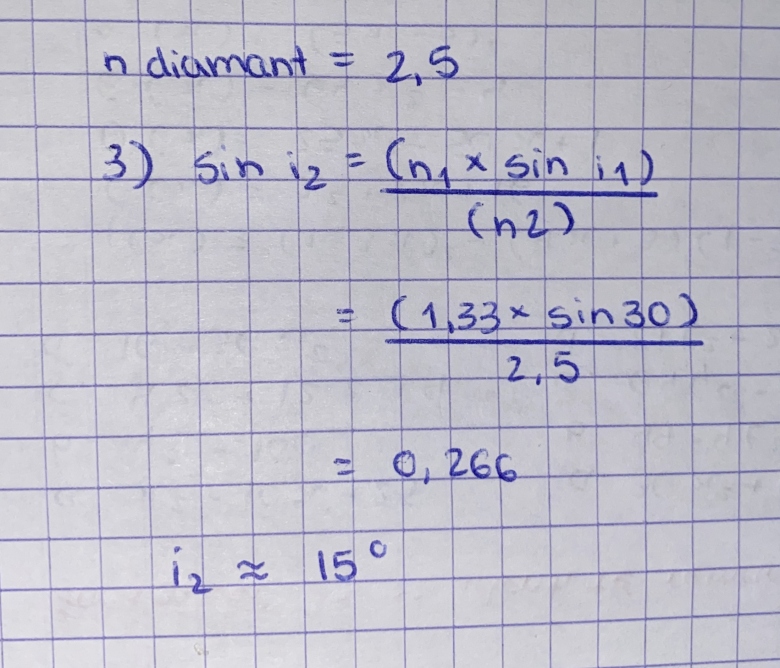 n diamant = 2,5
3) sin i2 = (n1 × sin i1)
(n2)
= (1,33 × sin 30)
2,5
= 0,266
i2 ≈ 15°